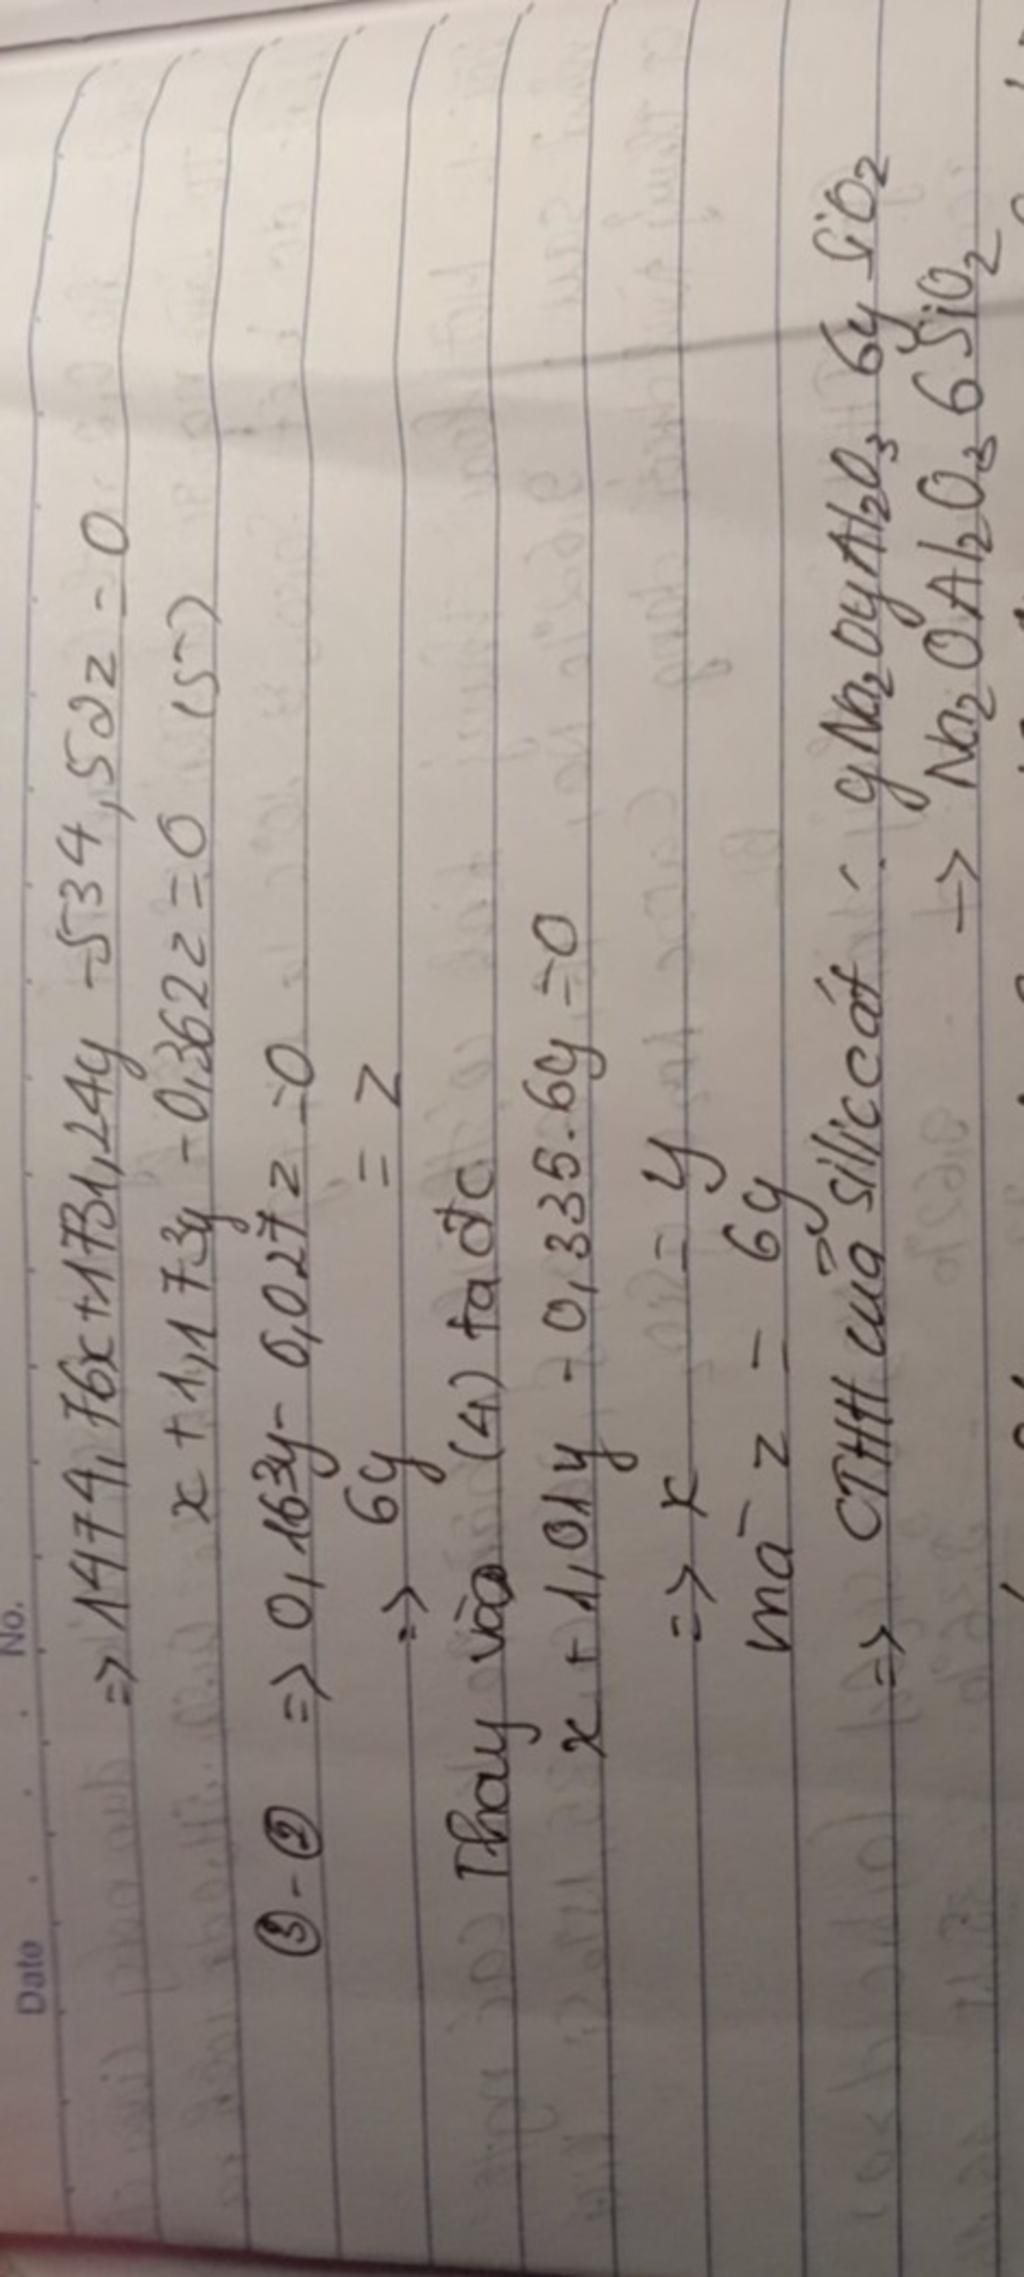 Date No.
=> 1474,76x + 1731,24y - 534,52z = 0
x + 1,173y - 0,362z = 0 (5)
③ - ② => 0,163y - 0,027z = 0
=> 6y = z
Thay vào (4) ta đc
x + 1,01y - 0,335.6y = 0
=> x = y
mà z = 6y
=> CTHH của siliccát: yNa2OyAl2O3 6y SiO2
-> Na2OAl2O3 6SiO2